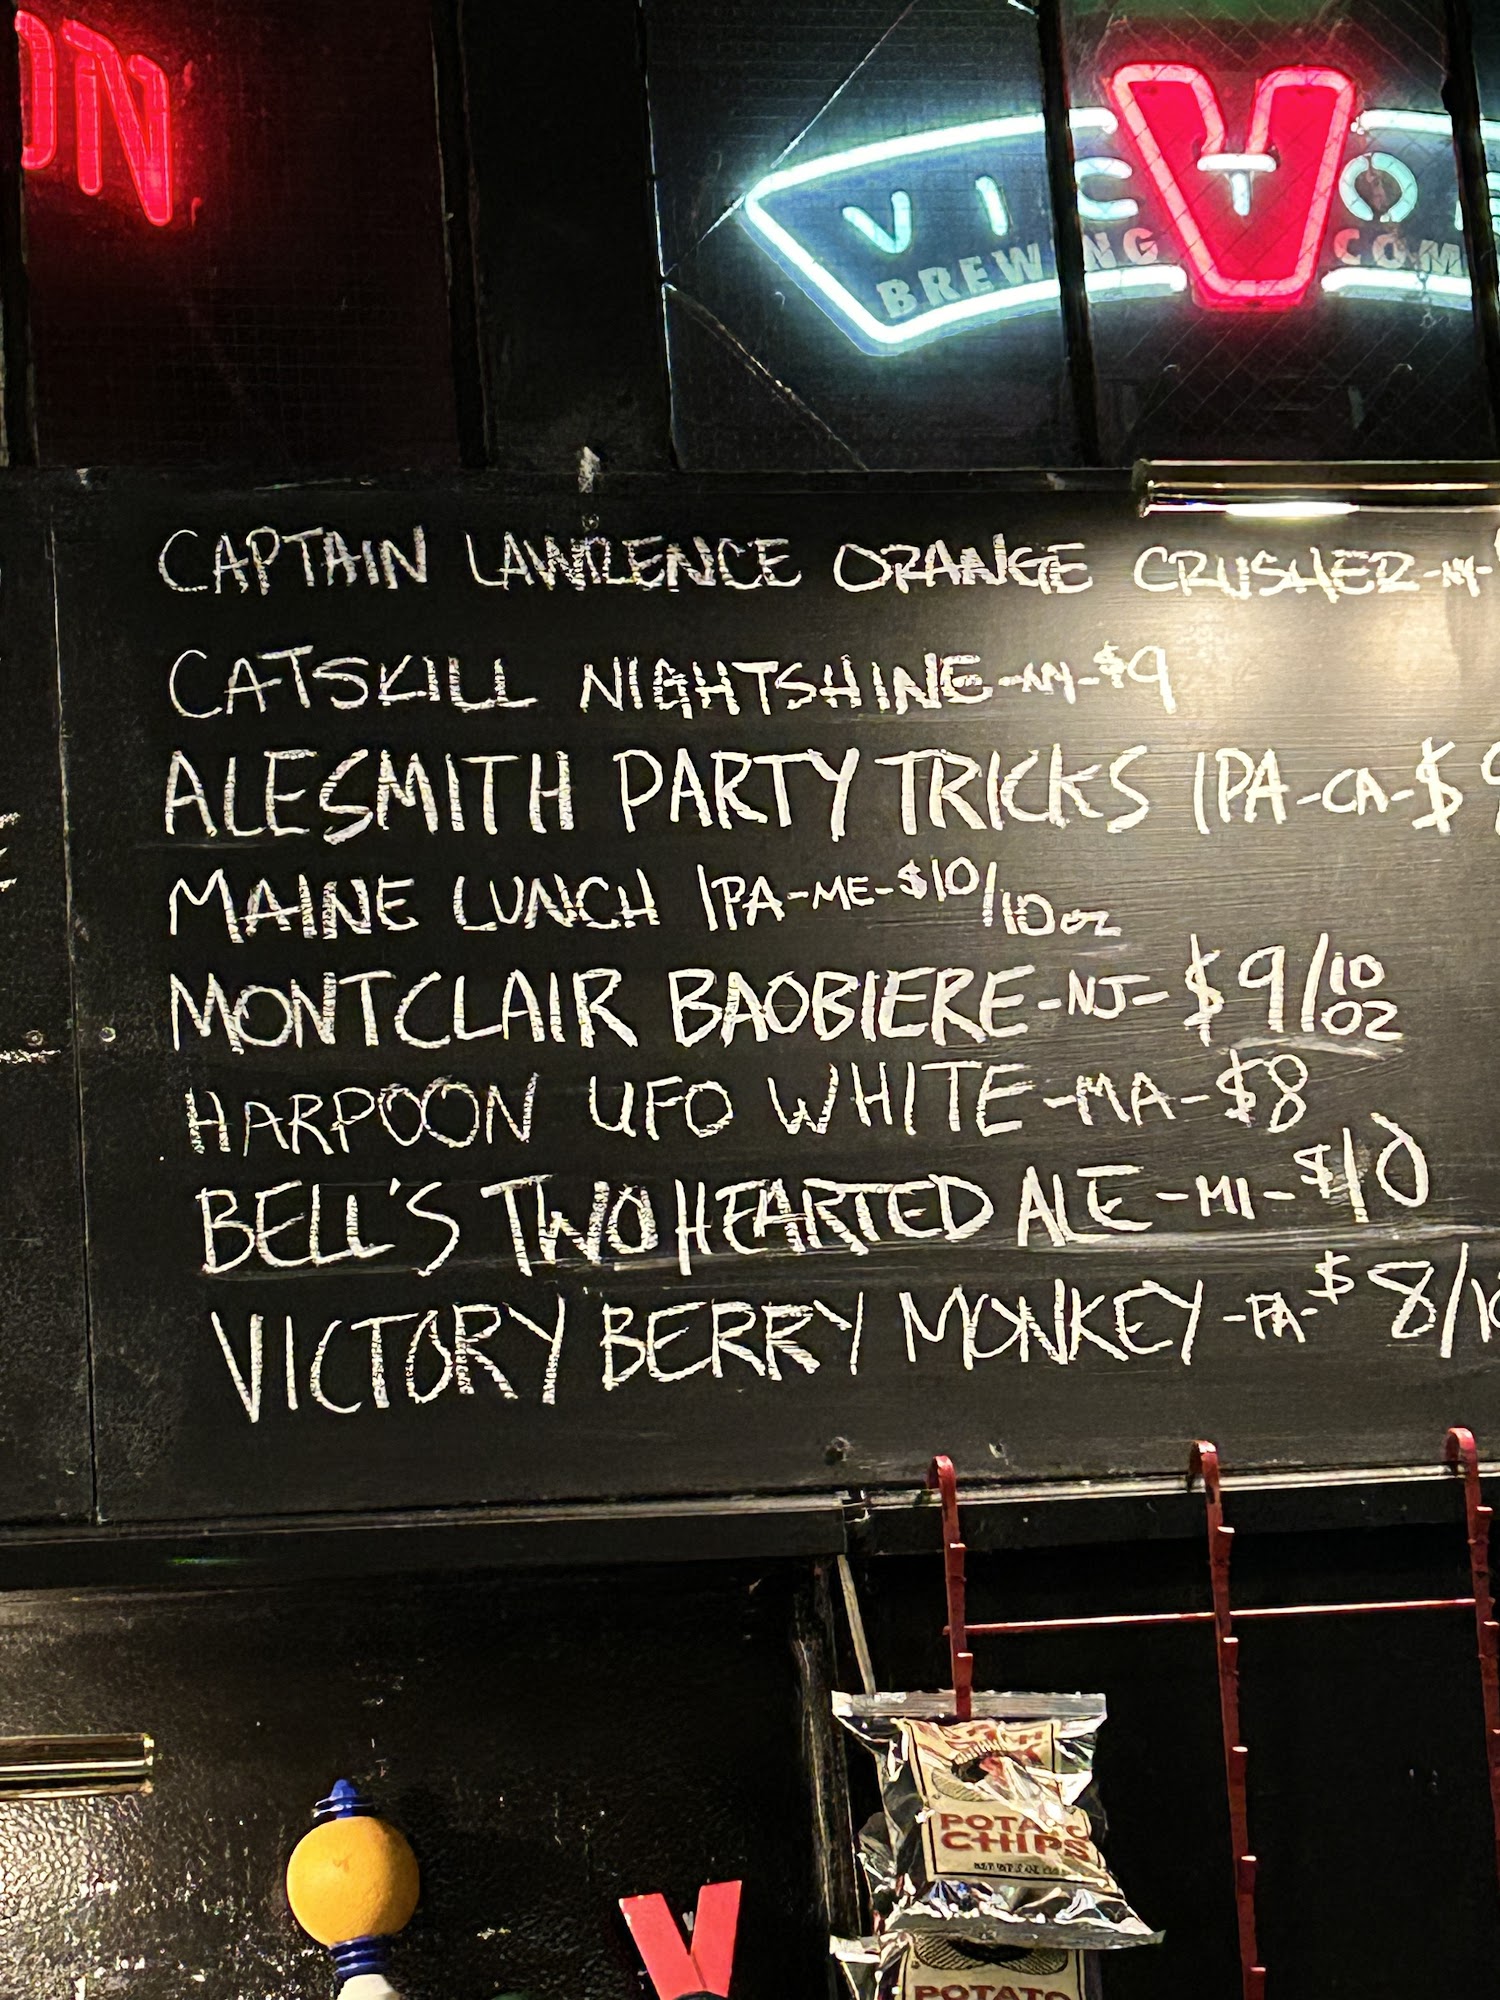 ON
VICTO
BREWING COM
CAPTAIN LAWRENCE ORANGE CRUSHER-NY-
CATSKILL NIGHTSHINE-NY-$9
ALESMITH PARTY TRICKS IPA-CA-$9
MAINE LUNCH IPA-ME-$10/10oz
MONTCLAIR BAOBIERE-NJ-$9/10 OZ
HARPOON UFO WHITE-MA-$8
BELL'S TWO HEARTED ALE-MI-$10
VICTORY BERRY MONKEY-PA-$8/10
POTATO
CHIPS
V
POTATO